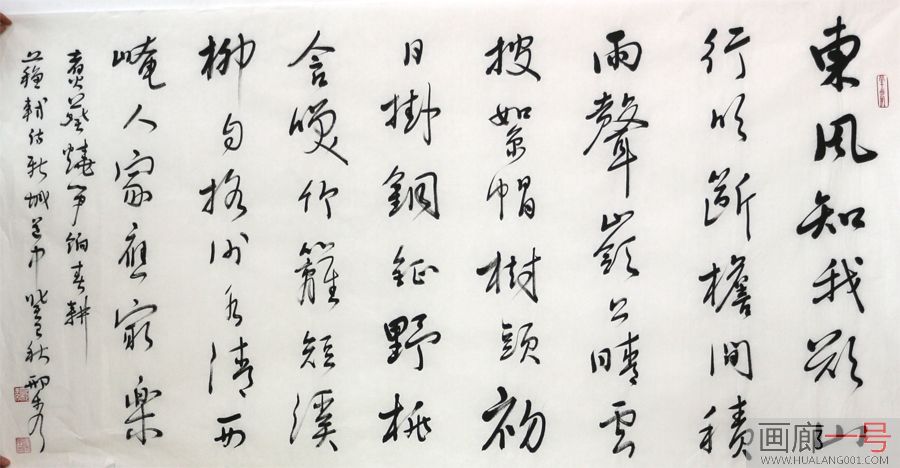 東風知我欲山
行吹斷檐間積
雨聲嶺上晴雲
披絮帽樹頭初
日掛銅鉦野桃
含笑竹籬短溪
柳自搖沙水清西
崦人家應最樂
煮葵燒筍餉春耕
蘇軾詩新城道中 秋
画廊一号
WWW.HUALANG001.COM